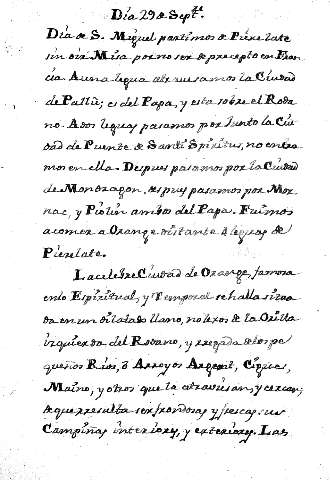 Dia 29 de Septre.
Dia de S. Miguel partimos de Pierelate
sin oir Misa por no ser de precepto en Fran
cia. A una legua atravesamos la Ciudad
de Pallu; es del Papa, y esta sobre el Roda
no. A dos leguas pasamos por junto la Ciu
dad de Puente de Santi Spiritus, no entra
mos en ella. Despues pasamos por la Ciudad
de Mondragon, despues pasamos por Mor
nac, y Piolin ambos del Papa. Fuimos
a comer a Orange distante leguas de
Pierelate.
La celebre Ciudad de Orange, famosa
en lo Espiritual, y Temporal se halla situa
da en un dilatado llano, no lexos de la Orilla
izquierda del Rodano, y regada de los pe
queños Rios, ò Arroyos Argent, Cigues,
Maino, y otros que la atraviesan, y cercan;
de que resulta ser frondosas y frescas sus
Campiñas interiores, y exteriores. Las